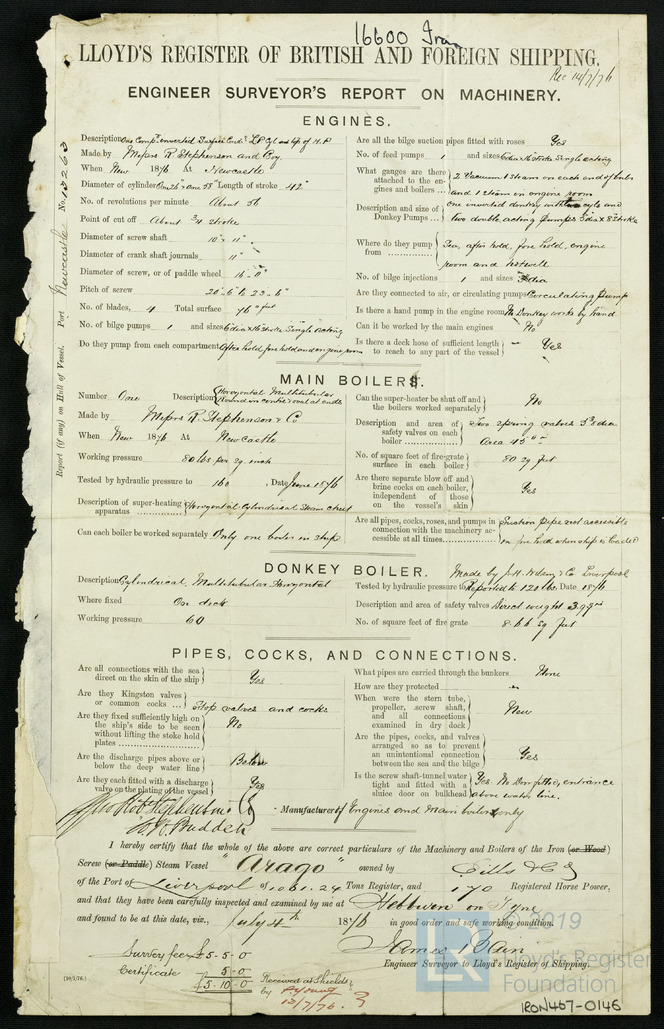 16600 Iron
LLOYD'S REGISTER OF BRITISH AND FOREIGN SHIPPING.
Rec 14/7/76
ENGINEER SURVEYOR'S REPORT ON MACHINERY.
Port Newcastle No. 13263
Report (if any) on Hull of Vessel.
ENGINES.
Description One Compd inverted Surface Condr L.P. Cyl on top of H.P
Made by Messrs R. Stephenson and Coy
When New 1876 At Newcastle
Diameter of cylinder One 26" One 55" Length of stroke 42"
No. of revolutions per minute About 56
Point of cut off About 3/4 stroke
Diameter of screw shaft 10" 11"
Diameter of crank shaft journals 11"
Diameter of screw, or of paddle wheel 14-0"
Pitch of screw 20-6 to 23-6"
No. of blades, 4 Total surface 46 feet
No. of bilge pumps 1 and sizes 6 dia x 16 stroke Single acting
Do they pump from each compartment After hold, fore hold and engine room
Are all the bilge suction pipes fitted with roses Yes
No. of feed pumps 1 and sizes 6 dia x 16 stroke Single acting
What gauges are there attached to the engines and boilers ... 2 Vacuum 1 Steam on each end of boiler and 1 steam in engine room
Description and size of Donkey Pumps ... One inverted donkey with two cyls and two double acting pumps 5 dia x 8 stroke
Where do they pump from Sea, after hold, fore hold, engine room and hotwell
No. of bilge injections 1 and sizes 3 dia
Are they connected to air, or circulating pumps Circulating pump
Is there a hand pump in the engine room No Donkey works by hand
Can it be worked by the main engines No
Is there a deck hose of sufficient length to reach to any part of the vessel Yes
MAIN BOILERS.
Number One Description Horizontal Multitubular Round in centre & oval at ends
Made by Messrs R. Stephenson & Co
When New 1876 At Newcastle
Working pressure 80 lbs per sq. inch
Tested by hydraulic pressure to 160, Date June 1876
Description of super-heating apparatus Horizontal Cylindrical Steam chest
Can each boiler be worked separately Only one boiler in ship
Can the super-heater be shut off and the boilers worked separately No
Description and area of safety valves on each boiler Two spring valves 5 3/8 dia Area 45"
No. of square feet of fire-grate surface in each boiler 80 sq feet
Are there separate blow off and brine cocks on each boiler, independent of those on the vessel's skin Yes
Are all pipes, cocks, roses, and pumps in connection with the machinery accessible at all times Suction pipe not accessible in fore hold when ship is loaded
DONKEY BOILER. Made by J. H. Wilson & Co Liverpool
Description Cylindrical Multitubular Horizontal
Where fixed On deck
Working pressure 60
Tested by hydraulic pressure to Reported to 120 lbs. Date 1876
Description and area of safety valves Direct weight 3.99"
No. of square feet of fire grate 8.66 sq feet
PIPES, COCKS, AND CONNECTIONS.
Are all connections with the sea direct on the skin of the ship Yes
Are they Kingston valves or common cocks ... Stop valves and cocks
Are they fixed sufficiently high on the ship's side to be seen without lifting the stoke hold plates No
Are the discharge pipes above or below the deep water line Below
Are they each fitted with a discharge valve on the plating of the vessel Yes
What pipes are carried through the bunkers None
How are they protected
When were the stern tube, propeller, screw shaft, and all connections examined in dry dock New
Are the pipes, cocks, and valves arranged so as to prevent an unintentional connection between the sea and the bilge Yes
Is the screw shaft-tunnel water tight and fitted with a sluice door on bulkhead Yes. entrance above water line.
pro Robt Stephenson & Co
W. H. Budden
Manufacturer of Engines and main boiler only
I hereby certify that the whole of the above are correct particulars of the Machinery and Boilers of the Iron (or Wood)
Screw (or Paddle) Steam Vessel "Arago" owned by
of the Port of Liverpool of 1031.24 Tons Register, and 170 Registered Horse Power,
and that they have been carefully inspected and examined by me at Hebburn on Tyne
and found to be at this date, viz., July 4th 1876 in good order and safe working condition.
James Blain
Engineer Surveyor to Lloyd's Register of Shipping.
Survey fee £5-5-0
Certificate 5-0
£5-10-0
Received at Shields
by
13/7/76.
IRON467-0146
© 2019
Lloyd's Register
Foundation